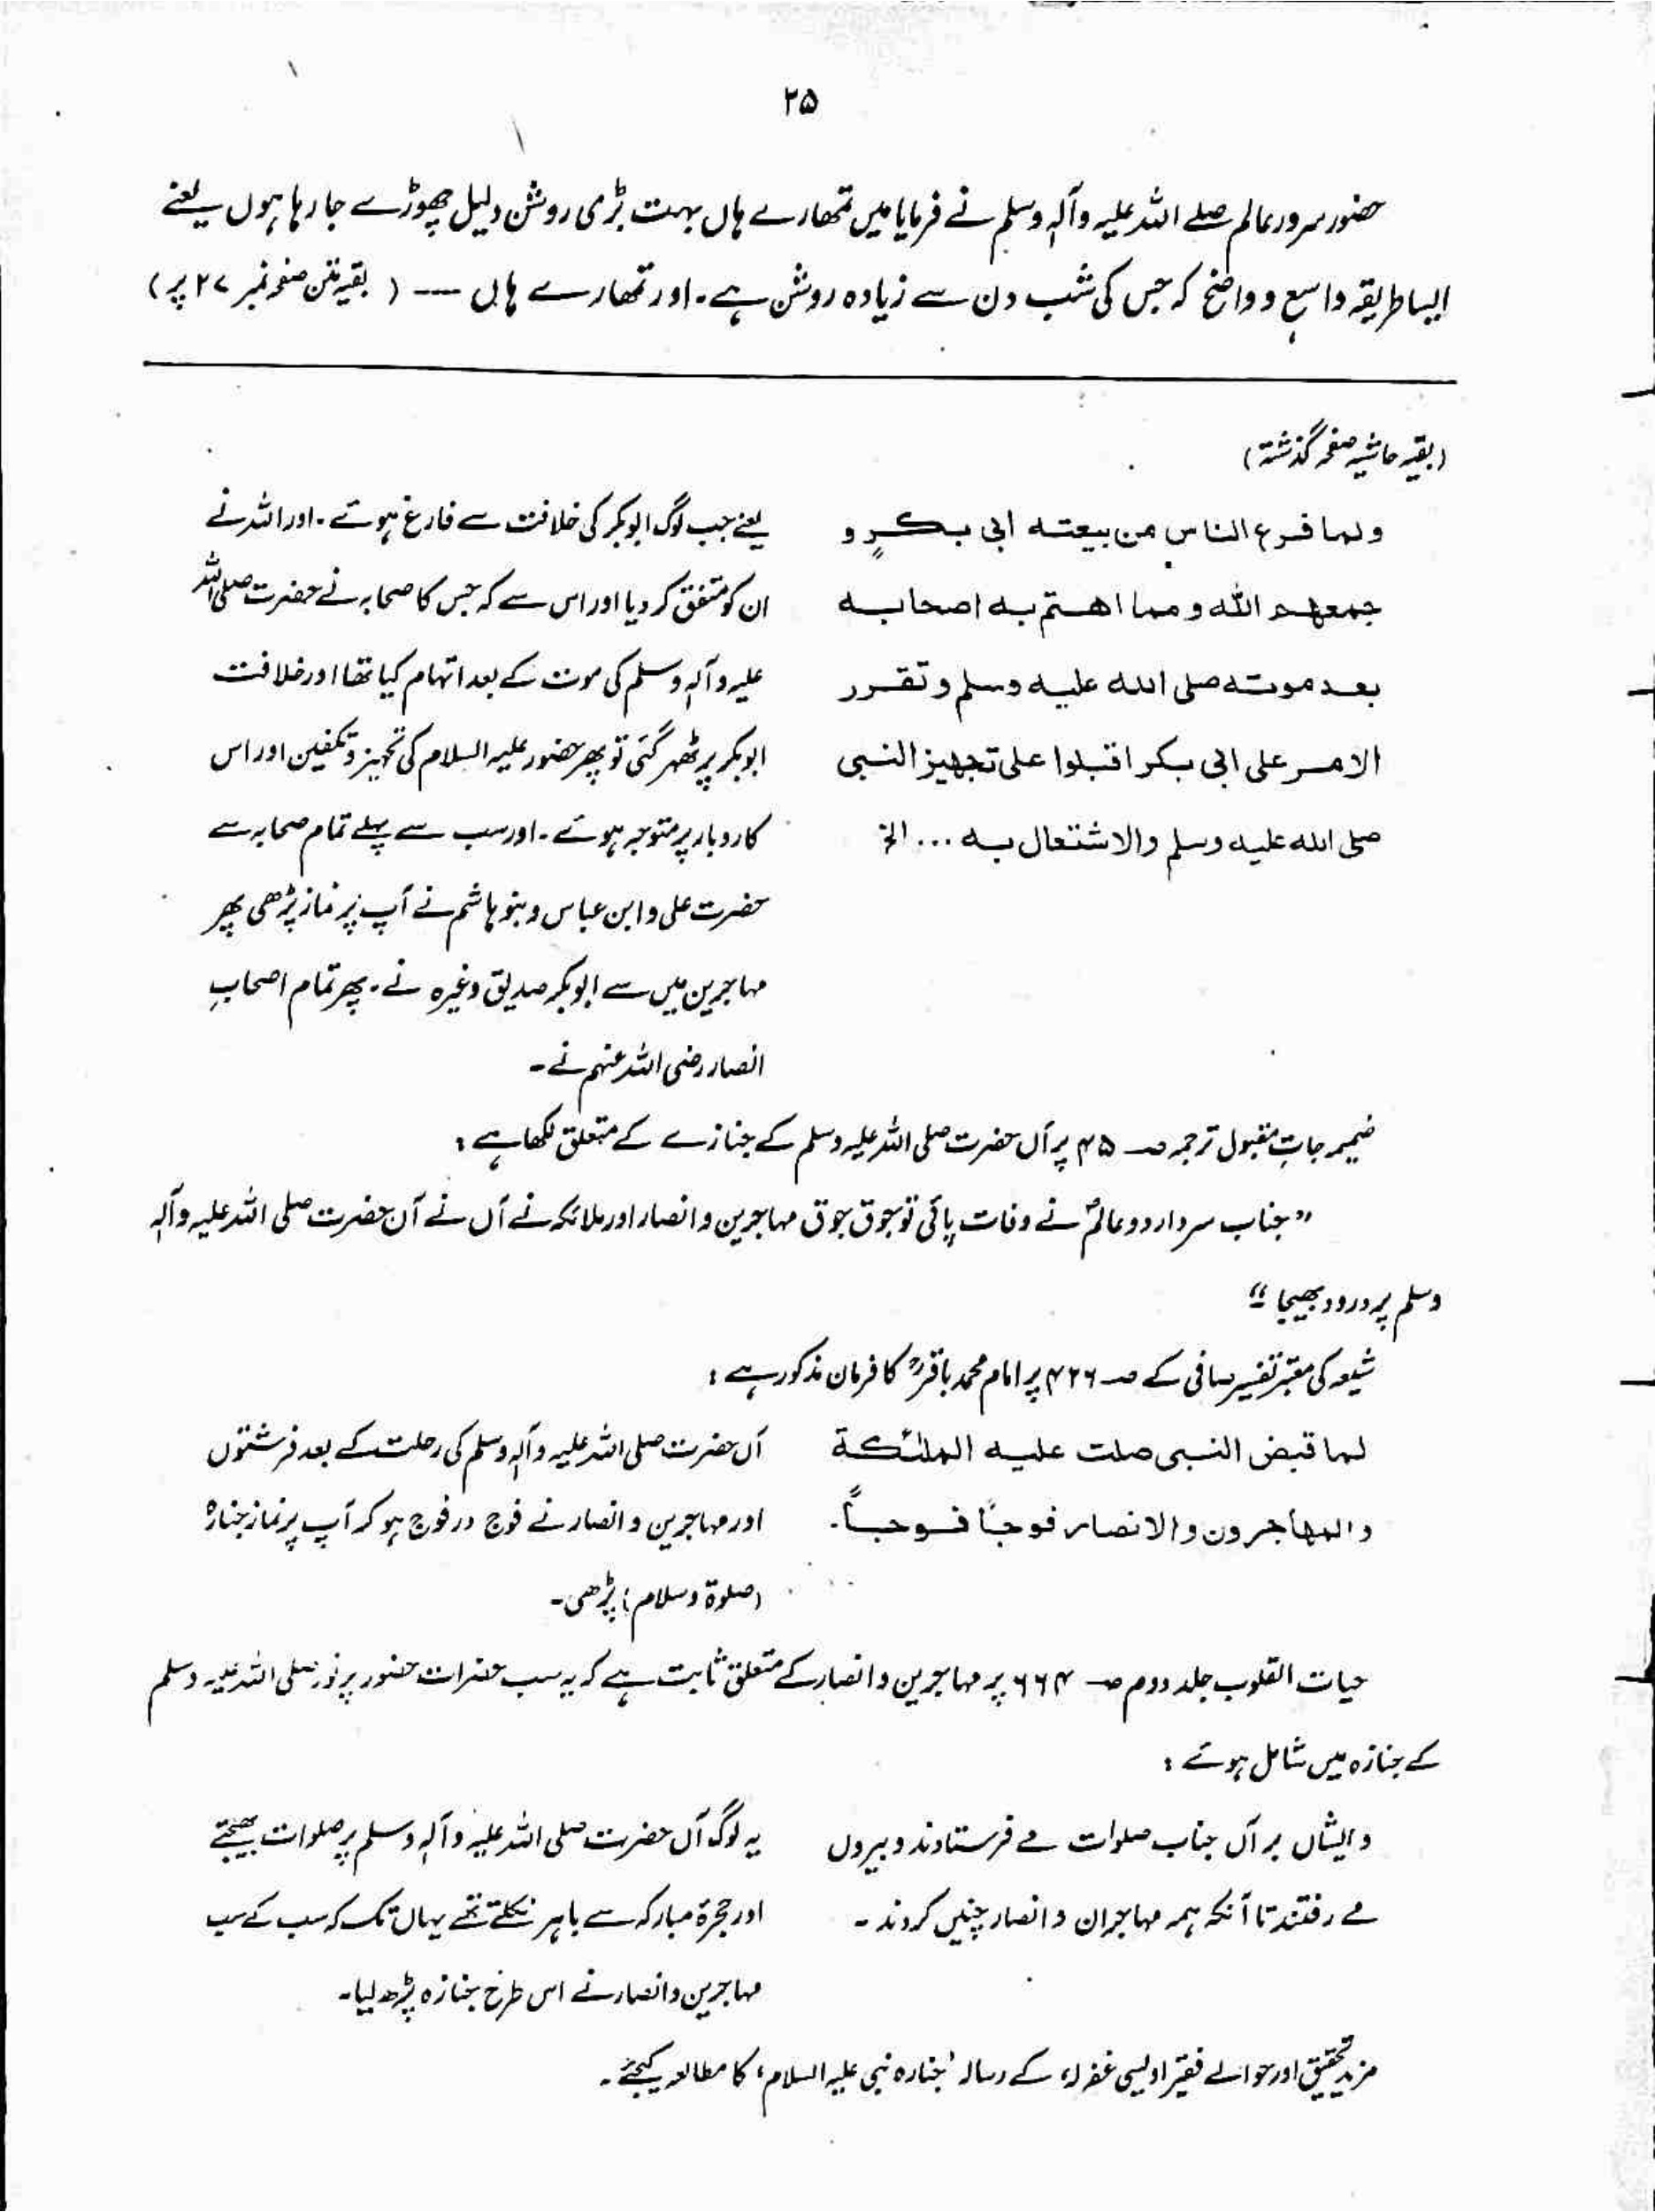 ۲۵
حضور سرور عالم صلے اللہ علیہ وآلہٖ وسلم نے فرمایا میں تمھارے ہاں بہت بڑی روشن دلیل چھوڑے جا رہا ہوں یعنے
ایسا طریقہ واسع و واضح کہ جس کی شب دن سے زیادہ روشن ہے۔ اور تمھارے ہاں --- ( بقیہ متن صفحہ نمبر ۲۷ پر )
(بقیہ حاشیہ صفحہ گذشتہ)
ولما فرع الناس من بیعتہ ابی بکرٍ و
جمعھم اللہ و مما اھتم بہ اصحابہ
بعد موتہ صلی اللہ علیہ وسلم و تقرر
الامر علی ابی بکر اقبلوا علی تجھیز النبی
صلی اللہ علیہ وسلم والاشتعال بہ ... الخ
یعنے جب لوگ ابوبکر کی خلافت سے فارغ ہوئے۔ اور اللہ نے
ان کو متفق کر دیا اور اس سے کہ جس کا صحابہ نے حضرت صلی اللہ
علیہ وآلہٖ وسلم کی موت کے بعد اتہام کیا تھا اور خلافت
ابوبکر پر ٹھہر گئی تو پھر حضور علیہ السلام کی تجہیز و تکفین اور اس
کاروبار پر متوجہ ہوئے۔ اور سب سے پہلے تمام صحابہ سے
حضرت علی و ابن عباس و بنو ہاشم نے آپ پر نماز پڑھی پھر
مہاجرین میں سے ابوبکر صدیق وغیرہ نے۔ پھر تمام اصحابِ
انصار رضی اللہ عنہم نے۔
ضمیمہ جاتِ مقبول ترجمہ صـ ۴۵ پر آں حضرت صلی اللہ علیہ وسلم کے جنازے کے متعلق لکھا ہے :
"جناب سردار دو عالمؐ نے وفات پائی تو جوق جوق مہاجرین و انصار اور ملائکہ نے آں نے آن حضرت صلی اللہ علیہ وآلہٖ
وسلم پر درود بھیجا"
شیعہ کی معتبر تفسیر صافی کے صـ ۴۲۶ پر امام محمد باقرؒ کا فرمان مذکور ہے :
لما قبض النبی صلت علیہ الملئکۃ
والمھاجرون والانصار فوجًا فوجاً۔
آں حضرت صلی اللہ علیہ وآلہٖ وسلم کی رحلت کے بعد فرشتوں
اور مہاجرین و انصار نے فوج در فوج ہو کر آپ پر نماز جنازہ
(صلوٰۃ و سلام) پڑھی۔
حیات القلوب جلد دوم صـ ۶۶۴ پر مہاجرین و انصار کے متعلق ثابت ہے کہ یہ سب حضرات حضور پرنور صلی اللہ علیہ وسلم
کے جنازہ میں شامل ہوئے :
و ایشاں بر آں جناب صلوات مے فرستادند و بیروں
مے رفتند تا آنکہ ہمہ مہاجران و انصار چنیں کردند۔
یہ لوگ آں حضرت صلی اللہ علیہ وآلہٖ وسلم پر صلوات بھیجتے
اور حجرۂ مبارکہ سے باہر نکلتے تھے یہاں تک کہ سب کے سب
مہاجرین و انصار نے اس طرح جنازہ پڑھ لیا۔
مزید تحقیق اور حوالے فقیر اویسی غفرلہٗ کے رسالہ 'جنازہ نبی علیہ السلام' کا مطالعہ کیجئے۔